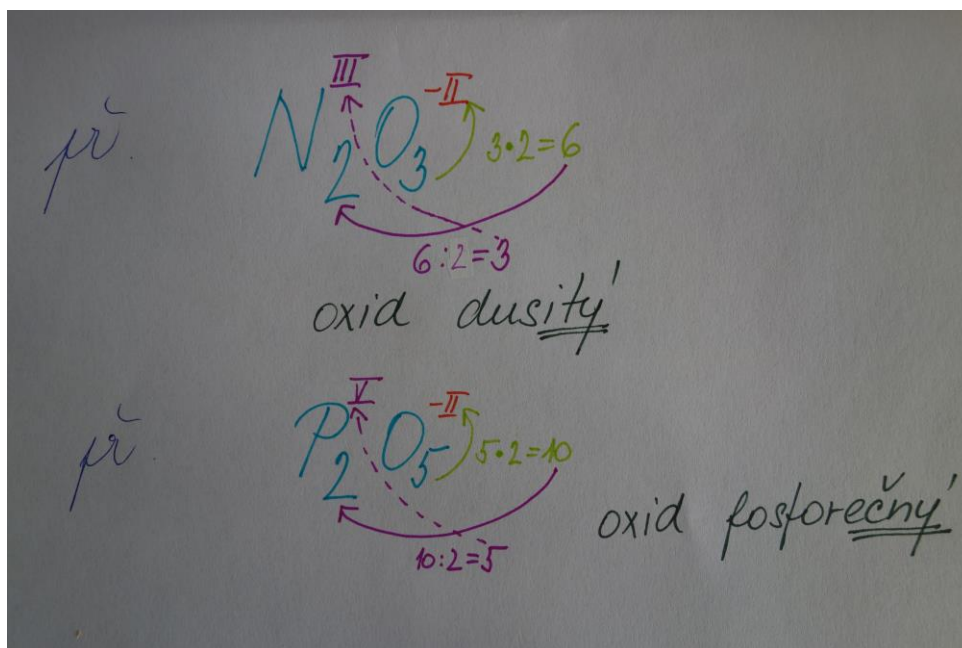 př. N₂ᴵᴵᴵO₃⁻ᴵᴵ 3·2=6
6:2=3
oxid dusitý
př. P₂ⱽO₅⁻ᴵᴵ 5·2=10
10:2=5
oxid fosforečný